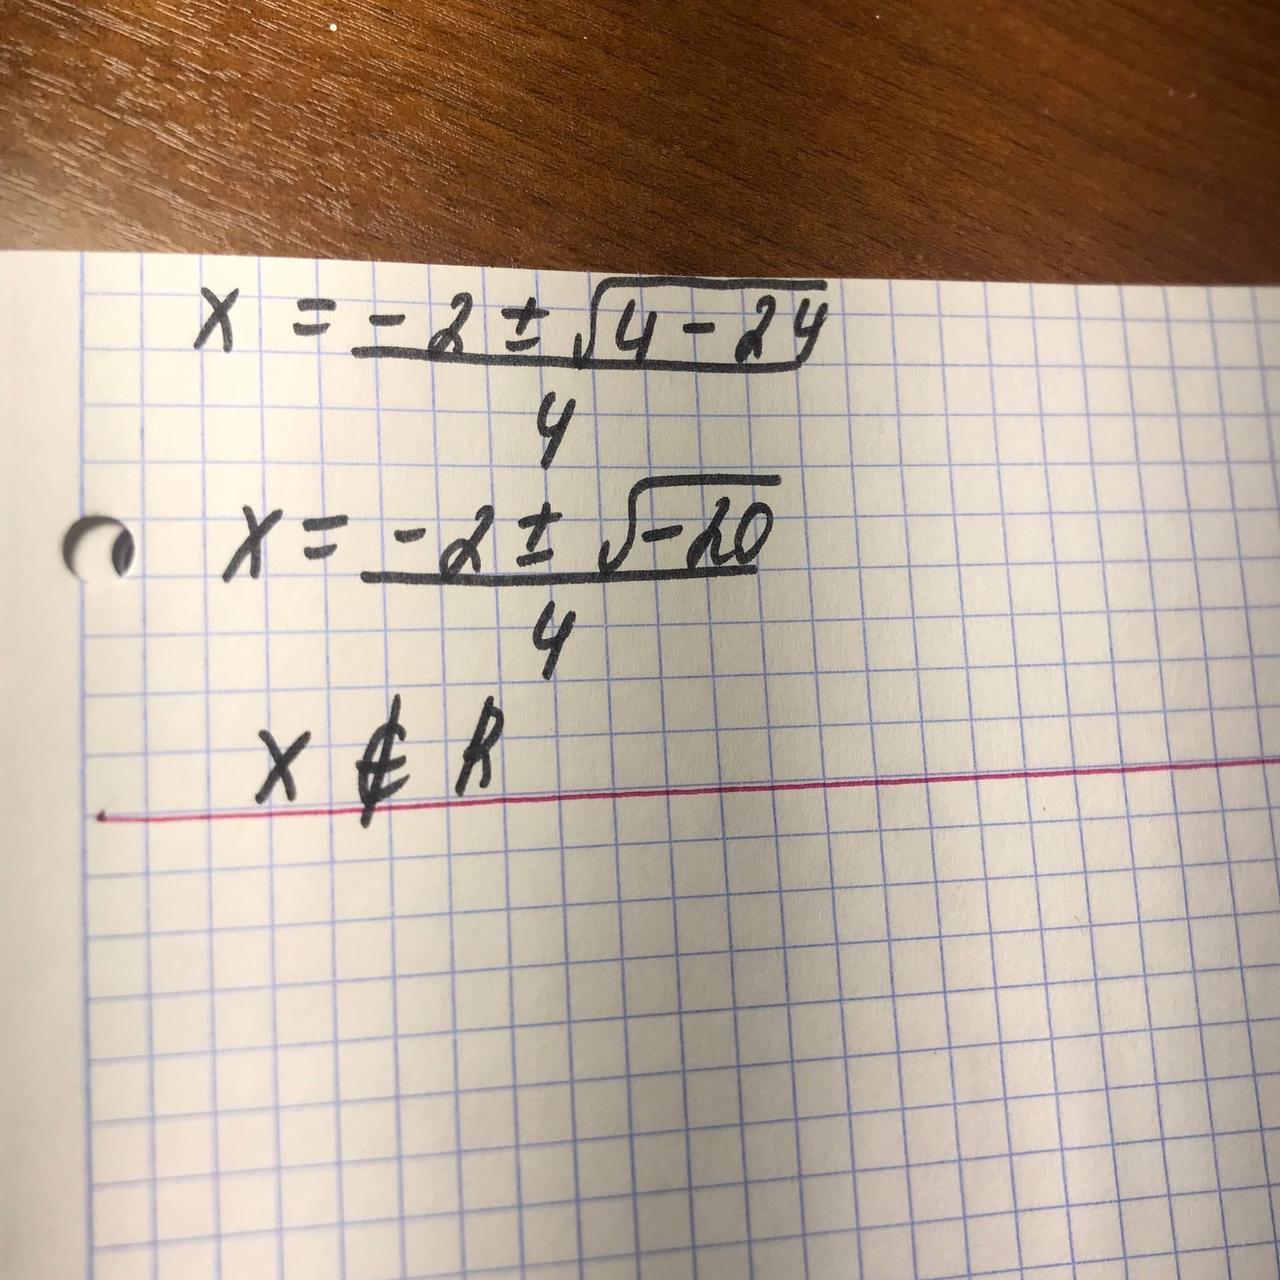 x = (-2 ± √(4 - 24)) / 4
x = (-2 ± √(-20)) / 4
x ∉ R